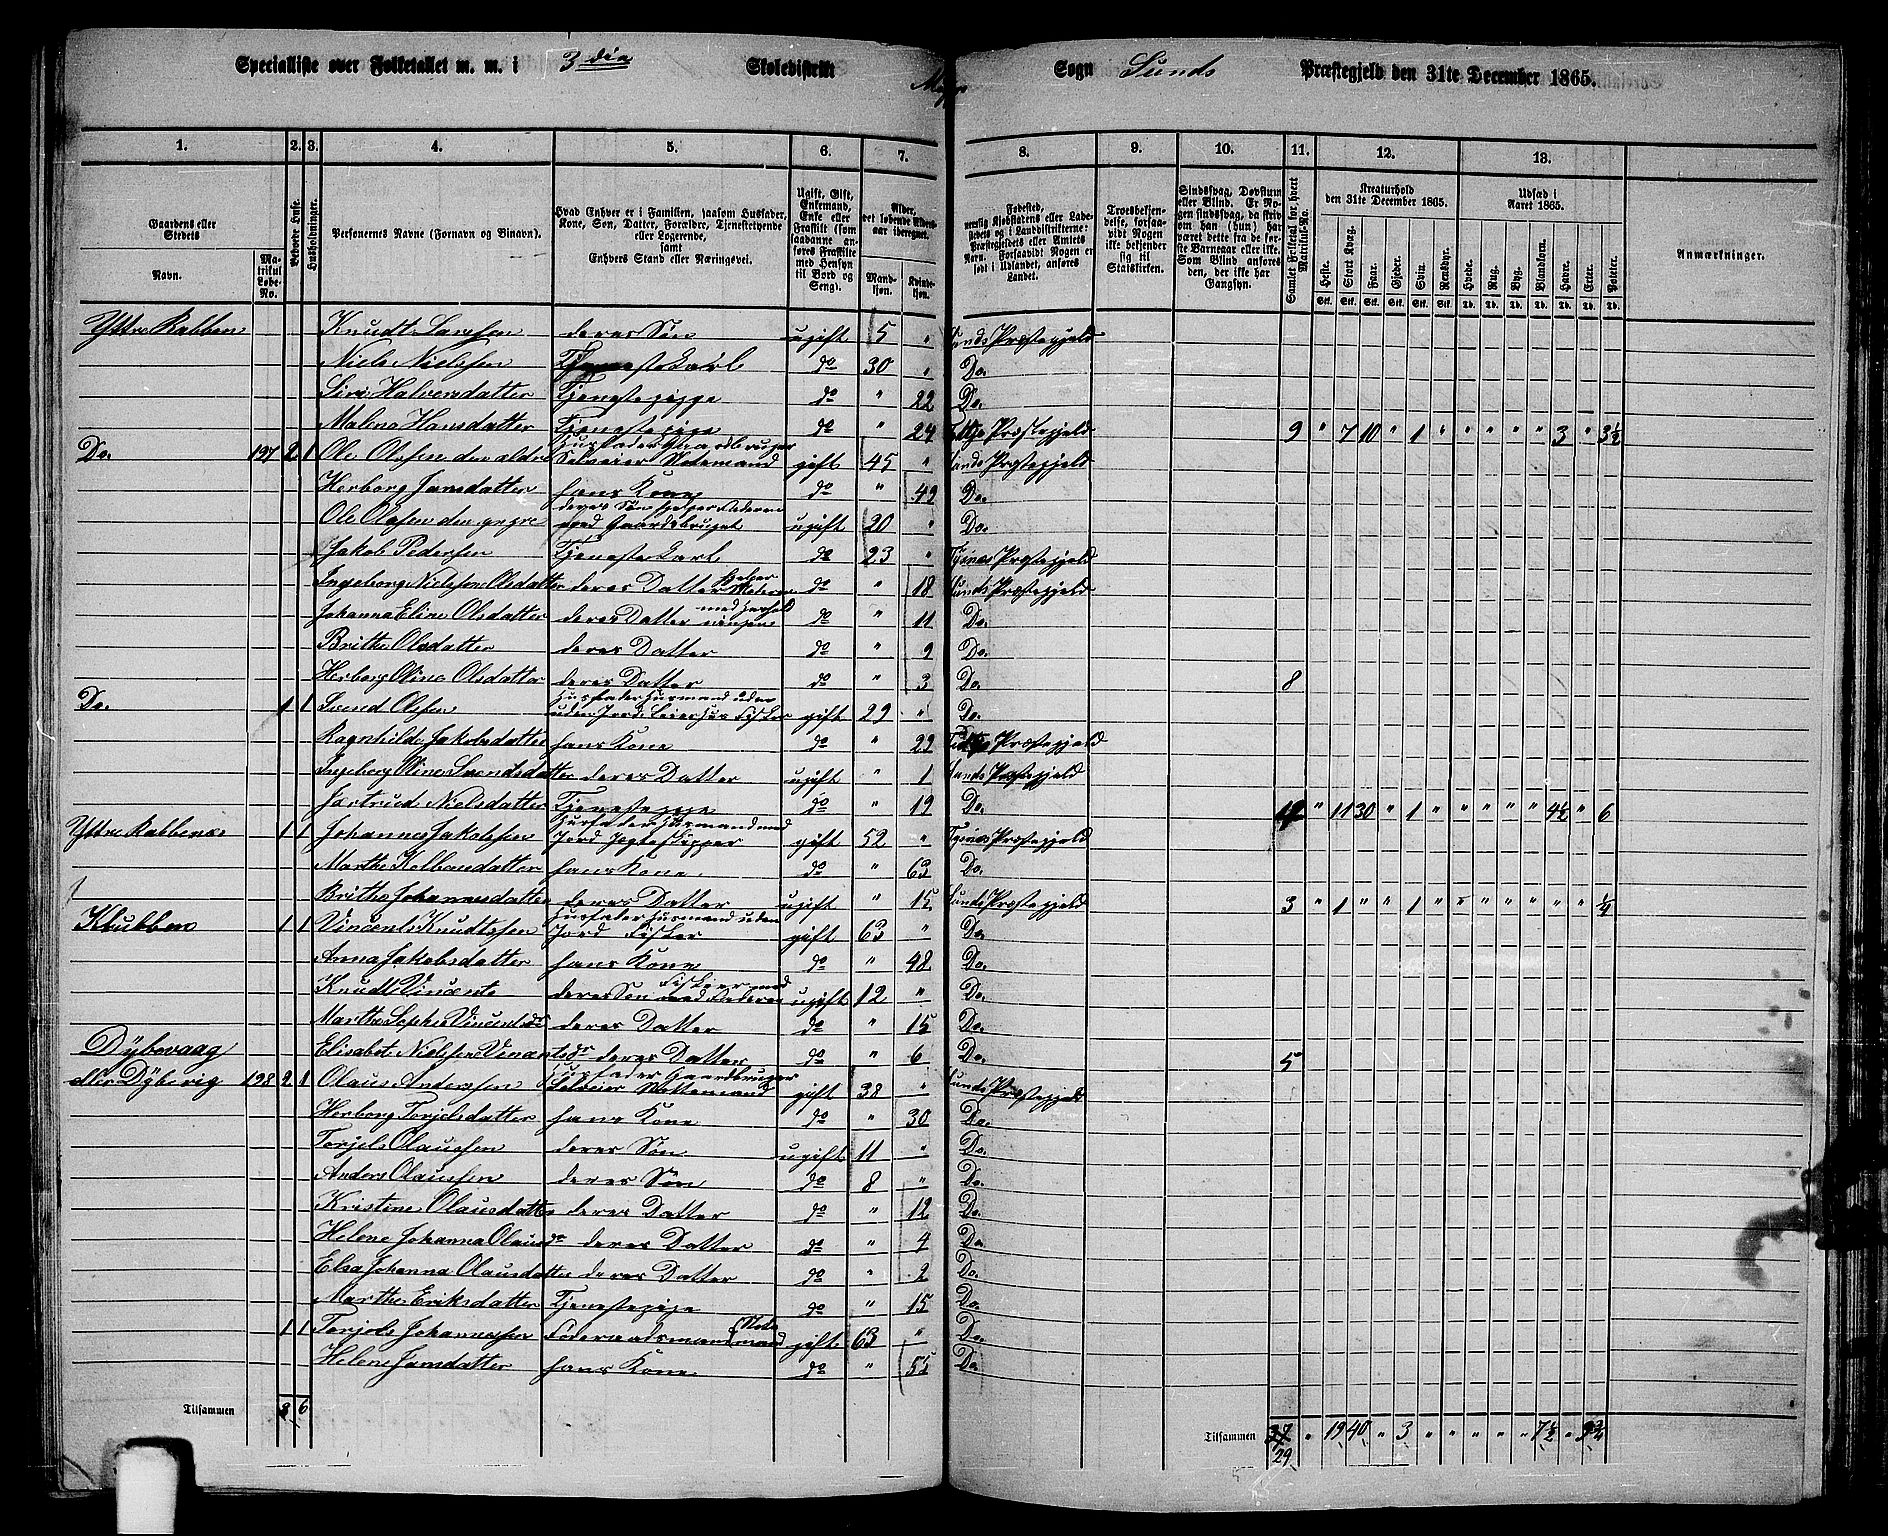 Specialliste over Folketallet m. m. i 3die Skoledistrikt Sogn Sunds Præstegjeld den 31te December 1865.
1. 2. 3. 4. 5. 6. 7. 8. 9. 10. 11. 12. 13.
Gaardens eller Stedets Navn. Matrikul Løbe-No. Beboede Huse. Husholdninger. Personernes Navne (Fornavn og Binavn).
Hvad Enhver er i Familien, saasom Husfader, Kone, Søn, Datter, Forældre, Tjenestetyende eller Logerende, samt Enhvers Stand eller Næringsvei.
Ugift, Gift, Enkemand, Enke eller Fraskilt (som saadanne anføres Fraskilte med Hensyn til Bord og Seng).
Alder, det løbende Alders-aar iberegnet. Mandkjøn. Kvindekjøn.
Fødested, nemlig Kjøbstadens eller Ladestedets og i Landdistrikterne: Præstegjeldets eller Amtets Navn. Forsaavidt Nogen er født i Udlandet, anføres Landet.
Troesbekjendelse, forsaavidt Nogen ikke bekjender sig til Statskirken.
Sindssvag, Døvstum eller Blind. Er Nogen sindssvag, da skrives om han (hun) har været dette fra de første Barneaar eller ikke. Som Blind anføres den, der ikke har Gangsyn.
Samlet Folketal for hvert Matrikul-No.
Kreaturhold den 31te December 1865. Heste. Stort Kvæg. Faar. Gjeder. Svin. Rensdyr.
Udsæd i Aaret 1865. Hvede. Rug. Byg. Blandkorn. Havre. Erter. Poteter.
Anmærkninger.
Stk. Stk. Stk. Stk. Stk. Stk. Td. Td. Td. Td. Td. Td. Td.
Yttre Rabben Knudt Larssen deres Søn ugift 5 " Sunds Præstegjeld
Niels Nielssen Tjenestekarl do 30 " Do.
Siri Halversdatter Tjenestepige do " 22 Do.
Malena Hansdatter Tjenestepige do " 24 Præstegjeld 9 " 7 10 " 1 " " " " " 3 " 3½
Do. 197 2 1 Ole Olssen den ældre Husfader Gaardbruger Selveier Notemand gift 45 " Sunds Præstegjeld
Herborg Jansdatter hans Kone do " 49 Do.
Ole Olssen den yngre deres Søn hjelper Faderen med Gaardsbruget ugift 20 " Do.
Jakob Pedersen Tjenestekarl do 23 " Tysnes Præstegjeld
Ingeborg Nielsine Olsdatter deres Datter hjelper Moderen do " 18 Sunds Præstegjeld
Johanna Eline Olsdatter deres Datter med Husholdningen do " 11 Do.
Brithe Olsdatter deres Datter do " 9 Do.
Herborg Oline Olsdatter deres Datter do " 3 Do. 8
Do. 1 1 Svend Olssen Husfader Husmand uden Jord Leier Hus Fisker gift 29 " Do.
Ragnhilde Jakobsdatter hans Kone do " 29 Præstegjeld
Ingeborg Oline Svendsdatter deres Datter ugift " 1 Sunds Præstegjeld
Jertrud Nielsdatter Tjenestepige do " 19 Do. " 11 30 " 1 " " " " " 4½ " 6
Yttre Rabbenes 1 1 Johannes Jakobssen Husfader Husmand med Jord Jægteskipper gift 52 " Tysnes Præstegjeld
Marthe Kolbensdatter hans Kone do " 63 Do.
Brithe Johannesdatter deres Datter ugift " 15 Sunds Præstegjeld 3 " 1 " " 1 " " " " " " " ¼
Klubben 1 1 Vincents Knudtssen Husfader Husmand uden Jord Fisker gift 63 " Do.
Anna Jakobsdatter hans Kone do " 48 Do.
Knudt Vincents deres Søn Fisker med Faderen ugift 12 " Do.
Marthe Sophie Vincentsdr deres Datter do " 15 Do.
Elisabet Nielsine Vincentsdr deres Datter do " 6 Do. 5
Dybevaag eller Dybevig 198 2 1 Olaus Anderssen Husfader Gaardbruger Selveier Nottemand gift 38 " Sunds Præstegjeld
Herborg Torjelsdatter hans Kone do " 30 Do.
Torjels Olaussen deres Søn ugift 11 " Do.
Anders Olaussen deres Søn do 8 " Do.
Kristine Olausdatter deres Datter do " 12 Do.
Helene Johanna Olausdr deres Datter do " 4 Do.
Elsa Johanna Olausdatter deres Datter do " 2 Do.
Marthe Eriksdatter Tjenestepige do " 15 Do.
1 1 Torjels Johannessen Føderaadsmand Notemand gift 63 " Do.
Helene Jansdatter hans Kone do " 55 Do.
Tilsammen 8 6 Tilsammen 37 " 19 40 " 3 " " " " " 7½ " 9¾
29